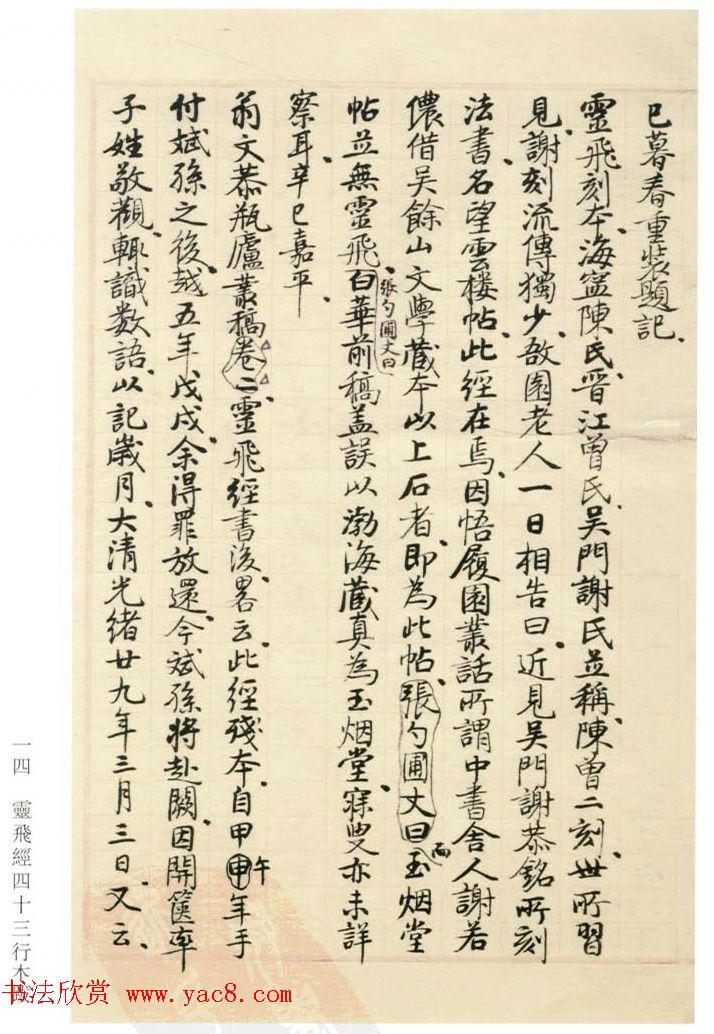 巳暮春重裝題記
靈飛刻本海寧陳氏晉江曾氏吳門謝氏並稱陳曾二刻世所習
見謝刻流傳獨少敔園老人一日相告曰近見吳門謝恭銘所刻
法書名望雲樓帖此經在焉因悟履園叢話所謂中書舍人謝若
儂借吳餘山文學藏本以上石者即為此帖張勺圃丈曰而玉烟堂
帖並無靈飛張勺圃丈曰白華前稿盖誤以渤海藏真為玉烟堂寐叟亦未詳
察耳辛巳嘉平
翁文恭瓶廬叢稿卷二靈飛經書後畧云此經殘本自甲申午年手
付斌孫之後越五年戊戌余得罪放還今斌孫將赴闕因開篋率
子姓敬觀輒識数語以記歲月大清光緒廿九年三月三日又云
一四 靈飛經四十三行木
书法欣赏 www.yac8.com